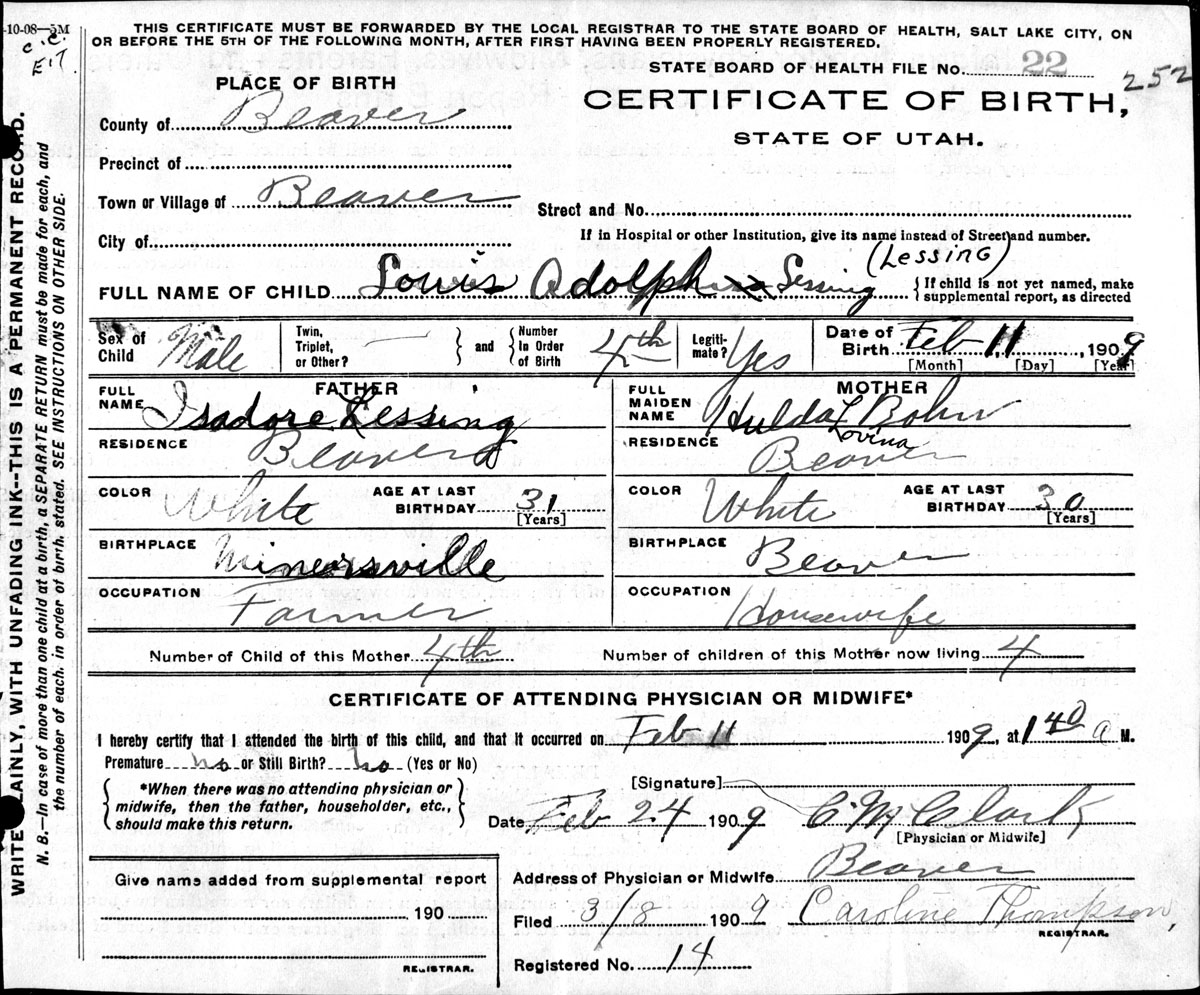 -10-08—5M
THIS CERTIFICATE MUST BE FORWARDED BY THE LOCAL REGISTRAR TO THE STATE BOARD OF HEALTH, SALT LAKE CITY, ON
OR BEFORE THE 5TH OF THE FOLLOWING MONTH, AFTER FIRST HAVING BEEN PROPERLY REGISTERED.
STATE BOARD OF HEALTH FILE NO. 22
252
PLACE OF BIRTH
CERTIFICATE OF BIRTH,
STATE OF UTAH.
County of Beaver
Precinct of
Town or Village of Beaver
Street and No.
City of
If in Hospital or other Institution, give its name instead of Street and number.
(LESSING)
FULL NAME OF CHILD Lowis Adolph Lessing { If child is not yet named, make
supplemental report, as directed
Sex of Child Male
Twin, Triplet, or Other? —
} and {
Number In Order of Birth 4th
Legitimate? Yes
Date of Birth Feb 11, 1909
[Month] [Day] [Year]
FATHER
FULL NAME Isadore Lessing
RESIDENCE Beaver
COLOR White AGE AT LAST BIRTHDAY 31 [Years]
BIRTHPLACE Minersville
OCCUPATION Farmer
MOTHER
FULL MAIDEN NAME Hulda L Bohn
Lovina
RESIDENCE Beaver
COLOR White AGE AT LAST BIRTHDAY 30 [Years]
BIRTHPLACE Beaver
OCCUPATION Housewife
Number of Child of this Mother 4th Number of children of this Mother now living 4
CERTIFICATE OF ATTENDING PHYSICIAN OR MIDWIFE*
I hereby certify that I attended the birth of this child, and that it occurred on Feb 11 1909, at 1 40 a M.
Premature no or Still Birth? no (Yes or No)
{ *When there was no attending physician or
midwife, then the father, householder, etc.,
should make this return. }
[Signature]
Date Feb 24 1909 C. M. Clark
[Physician or Midwife]
Give name added from supplemental report
190
REGISTRAR.
Address of Physician or Midwife Beaver
Filed 3/8 1909 Caroline Thompson,
REGISTRAR.
Registered No. 14
WRITE PLAINLY, WITH UNFADING INK---THIS IS A PERMANENT RECORD.
N. B.—In case of more than one child at a birth, a SEPARATE RETURN must be made for each, and
the number of each, in order of birth, stated. SEE INSTRUCTIONS ON OTHER SIDE.